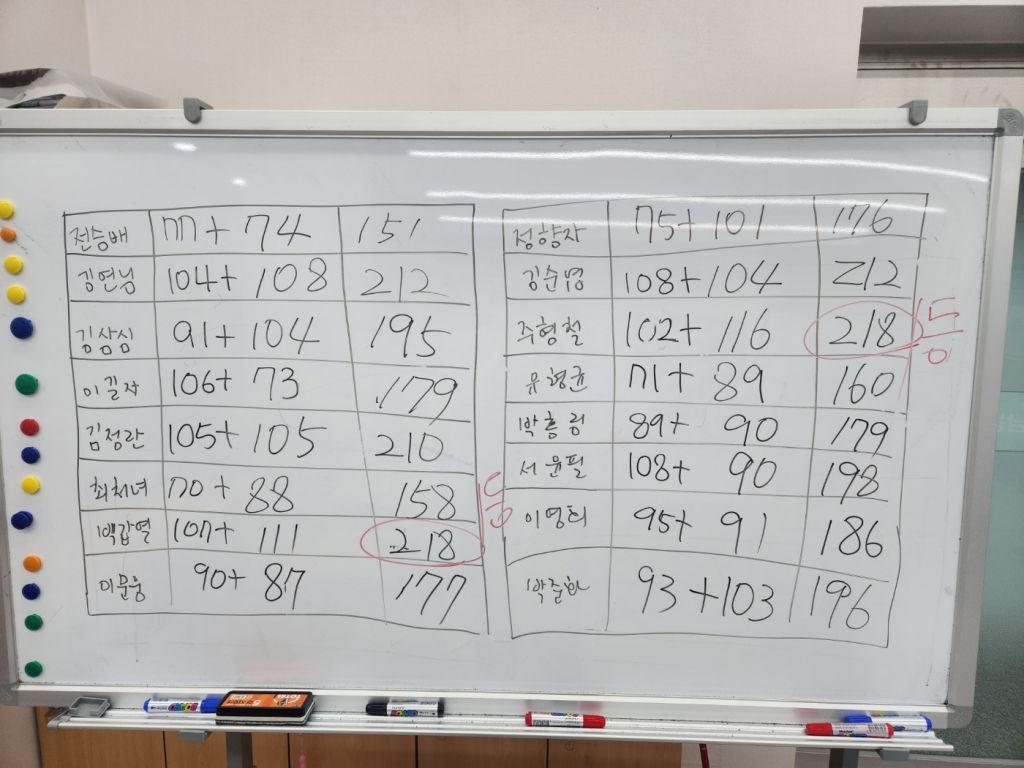 전승배 77+74 151
김연님 104+108 212
김삼심 91+104 195
이길자 106+73 179
김점란 105+105 210
최처녀 70+88 158
백갑열 107+111 218
이문웅 90+87 177
정향자 75+101 176
김순명 108+104 212
주형철 102+116 218
유형균 71+89 160
박흥림 89+90 179
서윤필 108+90 198
이영희 95+91 186
박준화 93+103 196